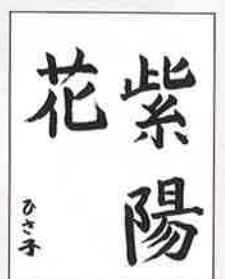 紫陽
花
ひさ子